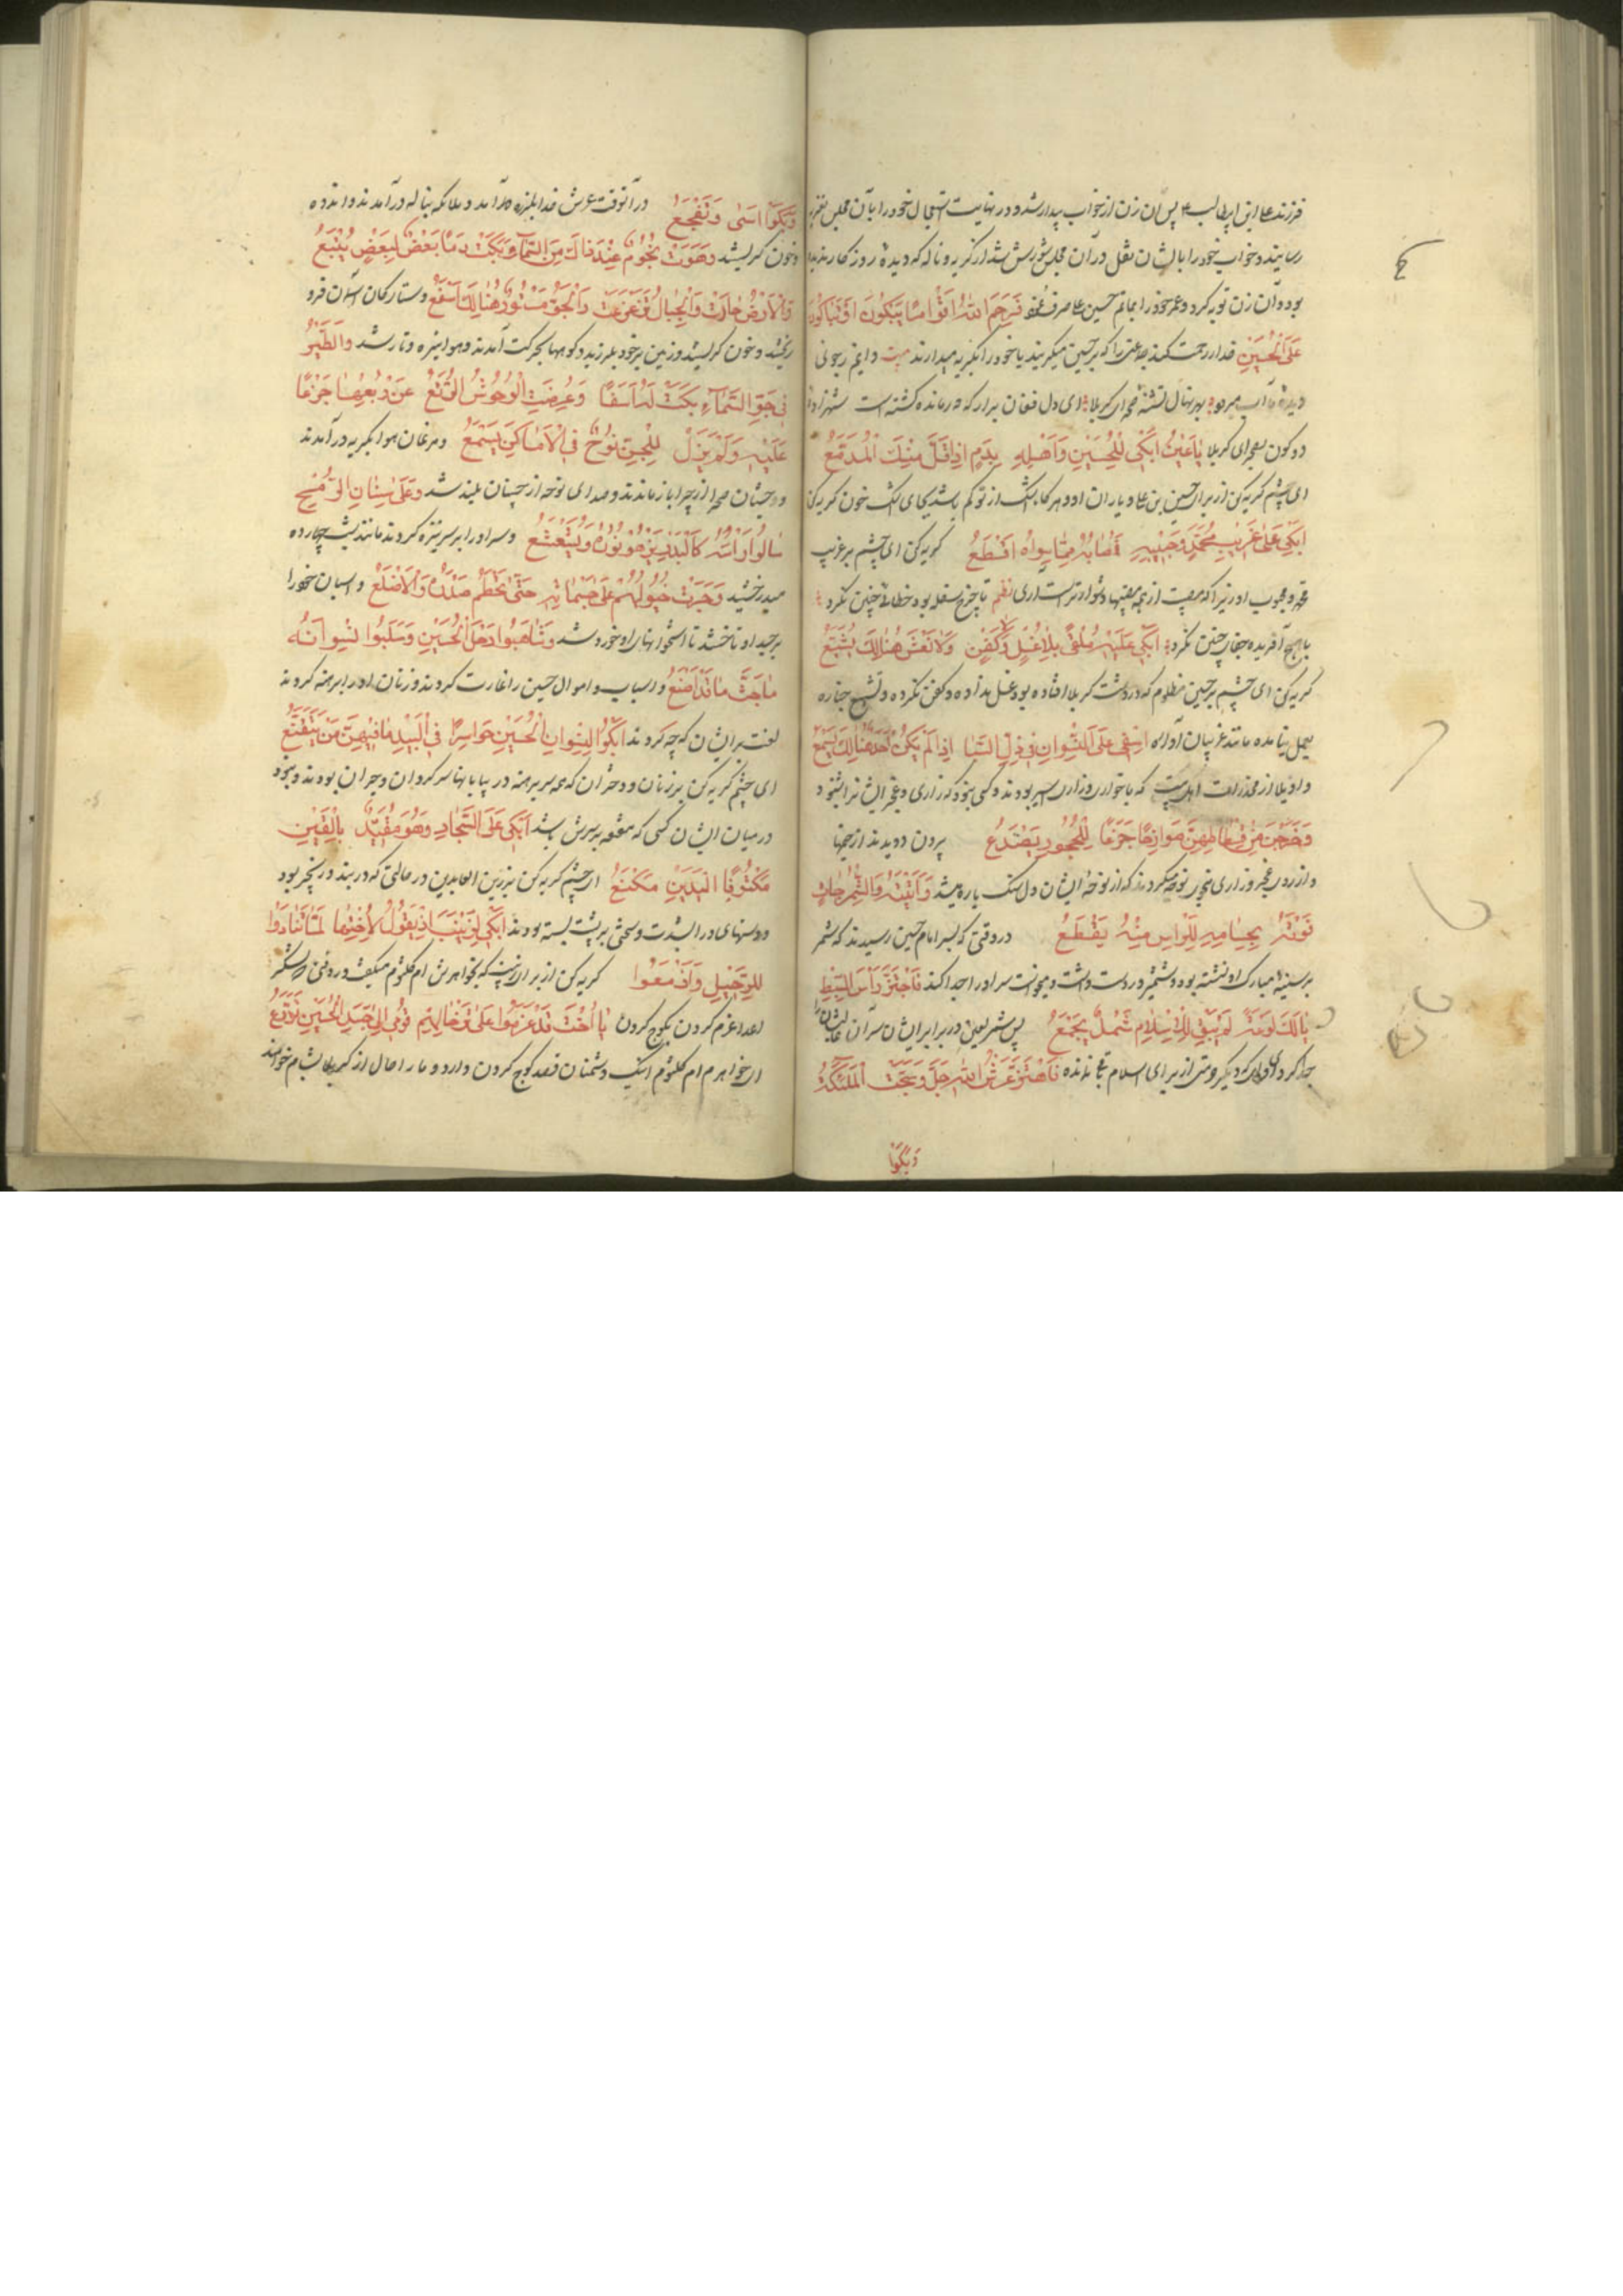 فرزند علی ابن ابیطالب پس آن زن از خواب بیدار شد و در نهایت استعجال خود را بآن مجلس
رسانید و خواب خود را بایشان نقل در آن مجلس شورش شد از گریه و ناله که دیده روزگار ندیده
بود و آن زن توبه کرد و عمر خود را بماتم حسین علیه صرف فَرَحِمَ اللهُ اَقْوٰامًا يَبْكُونَ اَوْ تَبَاكُونَ
عَلَى الْحُسَيْنِ خدا رحمت کند جماعتی را که بر حسین میگریند یا خود را بگریه میدارند بیت دایم ز
دیده آب بهر نهال تشنه صحرای کربلا ای دل فغان برار که درمانده کشته است شهزاده
دو کون بصحرای کربلا يٰا عَيْنُ ابْكِي لِلْحُسَيْنِ وَاَهْلِهِ بِدَمٍ اِذٰا قَلَّ مِنْكِ الْمَدْمَعُ
ای چشم گریه کن از برای حسین بن علی و یاران او و هرگاه اشک از تو کم باشد بجای اشک خون گریه کن
ابْكِي عَلٰى غَرِيبِ مُحَمَّدٍ وَحَبِيبِهِ فَمُصٰابُهُ مِمّٰا سِوٰاهُ اَفْظَعُ گریه کن ای چشم بر غریب
محمد و محبوب او زیرا که مصیبت از همه مصیبتها دشوارتر است آری نظم تا چرخ سفله بود خطائی چنین نکرد
با هیچ آفریده جفای چنین نکرد ابْكِي عَلَيْهِ مُلْقًى بِلٰا غُسْلٍ وَكَفَنٍ وَلٰا نَعْشٍ هُنٰالِكَ يُشَيَّعُ
گریه کن ای چشم بر حسین مظلوم که در دشت کربلا افتاده بود غسل نداده و کفن نکرده و تشییع جنازه
بعمل نیامده مانند غریبان آواره اَسَفِي عَلَى النِّسْوٰانِ فِي ذُلِّ السِّبٰا اِذٰا لَمْ يَكُنْ اَحَدٌ هُنٰالِكَ يَسْمَعُ
واویلا از مخدرات اهل بیت که با خواری و زاری اسیر بودند و کسی نبود که زاری و عجز ایشان را بشنود
وَخَرَجْنَ مِنْ فُسْطٰاطِهِنَّ جَزَعًا لِلصُّخُورِ يَصْدَعُ بیرون دویدند از خیمها
و از روی عجز و زاری بنحوی نوحه میکردند که از نوحه ایشان دل سنگ پاره میشد وَاَتَيْنَهُ وَالشِّمْرُ جٰاثٍ
فَوْقَهُ بِحُسٰامِهِ لِلرَّاْسِ مِنْهُ يَقْطَعُ در وقتی که بسر امام حسین رسیدند که شمر
بر سینه مبارک او نشسته بود و شمشیر در دست داشت و میخواست سر او را جدا کند فَاجْتَزَّ رَاْسَ السِّبْطِ
يٰا لَكَ لَوْعَةً لَمْ يَبْقَ لِلْاِسْلٰامِ شَمْلٌ يُجْمَعُ پس شمر لعین در برابر ایشان سر آن عالیشان را
جدا کرد ای وای که دیگر حرمتی از برای اسلام بجا نمانده فَاهْتَزَّ عَرْشُ اللهِ جَلَّ وَضَجَّتِ الْمَلٰئِكَةُ
وَبَكَوْا
وَبَكَوْا اَسًى وَتَفَجَّعُوا در آنوقت عرش خدا بلرزه درآمد و ملائکه بناله درآمدند و اندوه
و خون گریستند وَهَوَتْ نُجُومٌ عِنْدَ ذٰلِكَ مِنَ السَّمٰآءِ وَبَكَتْ دَمًا بَعْضٌ لِبَعْضٍ يَتْبَعُ
وَالْاَرْضُ مٰارَتْ وَالْجِبٰالُ تَزَعْزَعَتْ وَالْجَوُّ مَسْتُورٌ هُنٰالِكَ اَسْفَعُ و ستارگان آسمان فرو
ریختند و خون گریستند و زمین بر خود بلرزید و کوهها بحرکت آمدند و هوا تیره و تار شد وَالطَّيْرُ
فِي جَوِّ السَّمٰآءِ بَكَتْ لَهُ اَسَفًا وَعُرِضَتِ الْوُحُوشُ الرُّتَّعُ عَنْ رُبُعِهٰا جَزَعًا
عَلَيْهِ وَلَمْ يَزَلْ لِلْجِنِّ نَوْحٌ فِي الْاَمٰاكِنِ يُسْمَعُ و مرغان هوا بگریه درآمدند
و وحشیان صحرا از چرا باز ماندند و صدای نوحه از جنیان بلند شد وَعَلٰى سِنٰانِ الرُّمْحِ
شٰالُوا رَاْسَهُ كَالْبَدْرِ يَزْهُو نُورُهُ وَيُشَعْشِعُ و سر او را بر سر نیزه کردند مانند شب چهارده
میدرخشید وَجَرَتْ خُيُولُهُمْ عَلٰى جُثْمٰانِهِ حَتّٰى تَحَطَّمَ صَدْرُهُ وَالْاَضْلُعُ و اسبان خود را
بر جسد او تاختند تا استخوانهای او خورد شد وَتَنٰاهَبُوا رَحْلَ الْحُسَيْنِ وَسَلَبُوا نِسْوٰانَهُ
و اسباب و اموال حسین را غارت کردند و زنان او را برهنه کردند
لعنت بر ایشان که چه کردند ابْكُوا لِنِسْوٰانِ الْحُسَيْنِ حَوٰاسِرًا فِي الْبِيدِ مٰا فِيهِنَّ مَنْ يَتَقَنَّعُ
ای چشم گریه کن بر زنان و دختران که همه سر برهنه در بیابانها سرگردان و حیران بودند و نبود
در میان ایشان کسی که مقنعه بسرش باشد ابْكِي عَلَى السَّجّٰادِ وَهْوَ مُقَيَّدٌ بِالْقَيْنِ
مَكْتُوفَ الْيَدَيْنِ مُكَنَّعُ ای چشم گریه کن بر زین العابدین در حالتی که در بند و زنجیر بود
و دستهای او را بشدت و سختی بر پشت بسته بودند ابْكِي لِزَيْنَبَ اِذْ تَقُولُ لِاُخْتِهٰا لَمّٰا تَنٰادَوْا
لِلرَّحِيلِ وَاَزْمَعُوا گریه کن از برای زینب که بخواهرش ام کلثوم میگفت در وقتی که لشکر
اعدا عزم کردن بکوچ کردن يٰا اُخْتِ قَدْ عَزَمُوا عَلٰى تَرْحٰالِهِمْ قُومِي اِلٰى جَسَدِ الْحُسَيْنِ نُوَدِّعُ
ای خواهرم ام کلثوم اینک دشمنان قصد کوچ کردن دارد و ما را حال از کربلا بشام خواهند